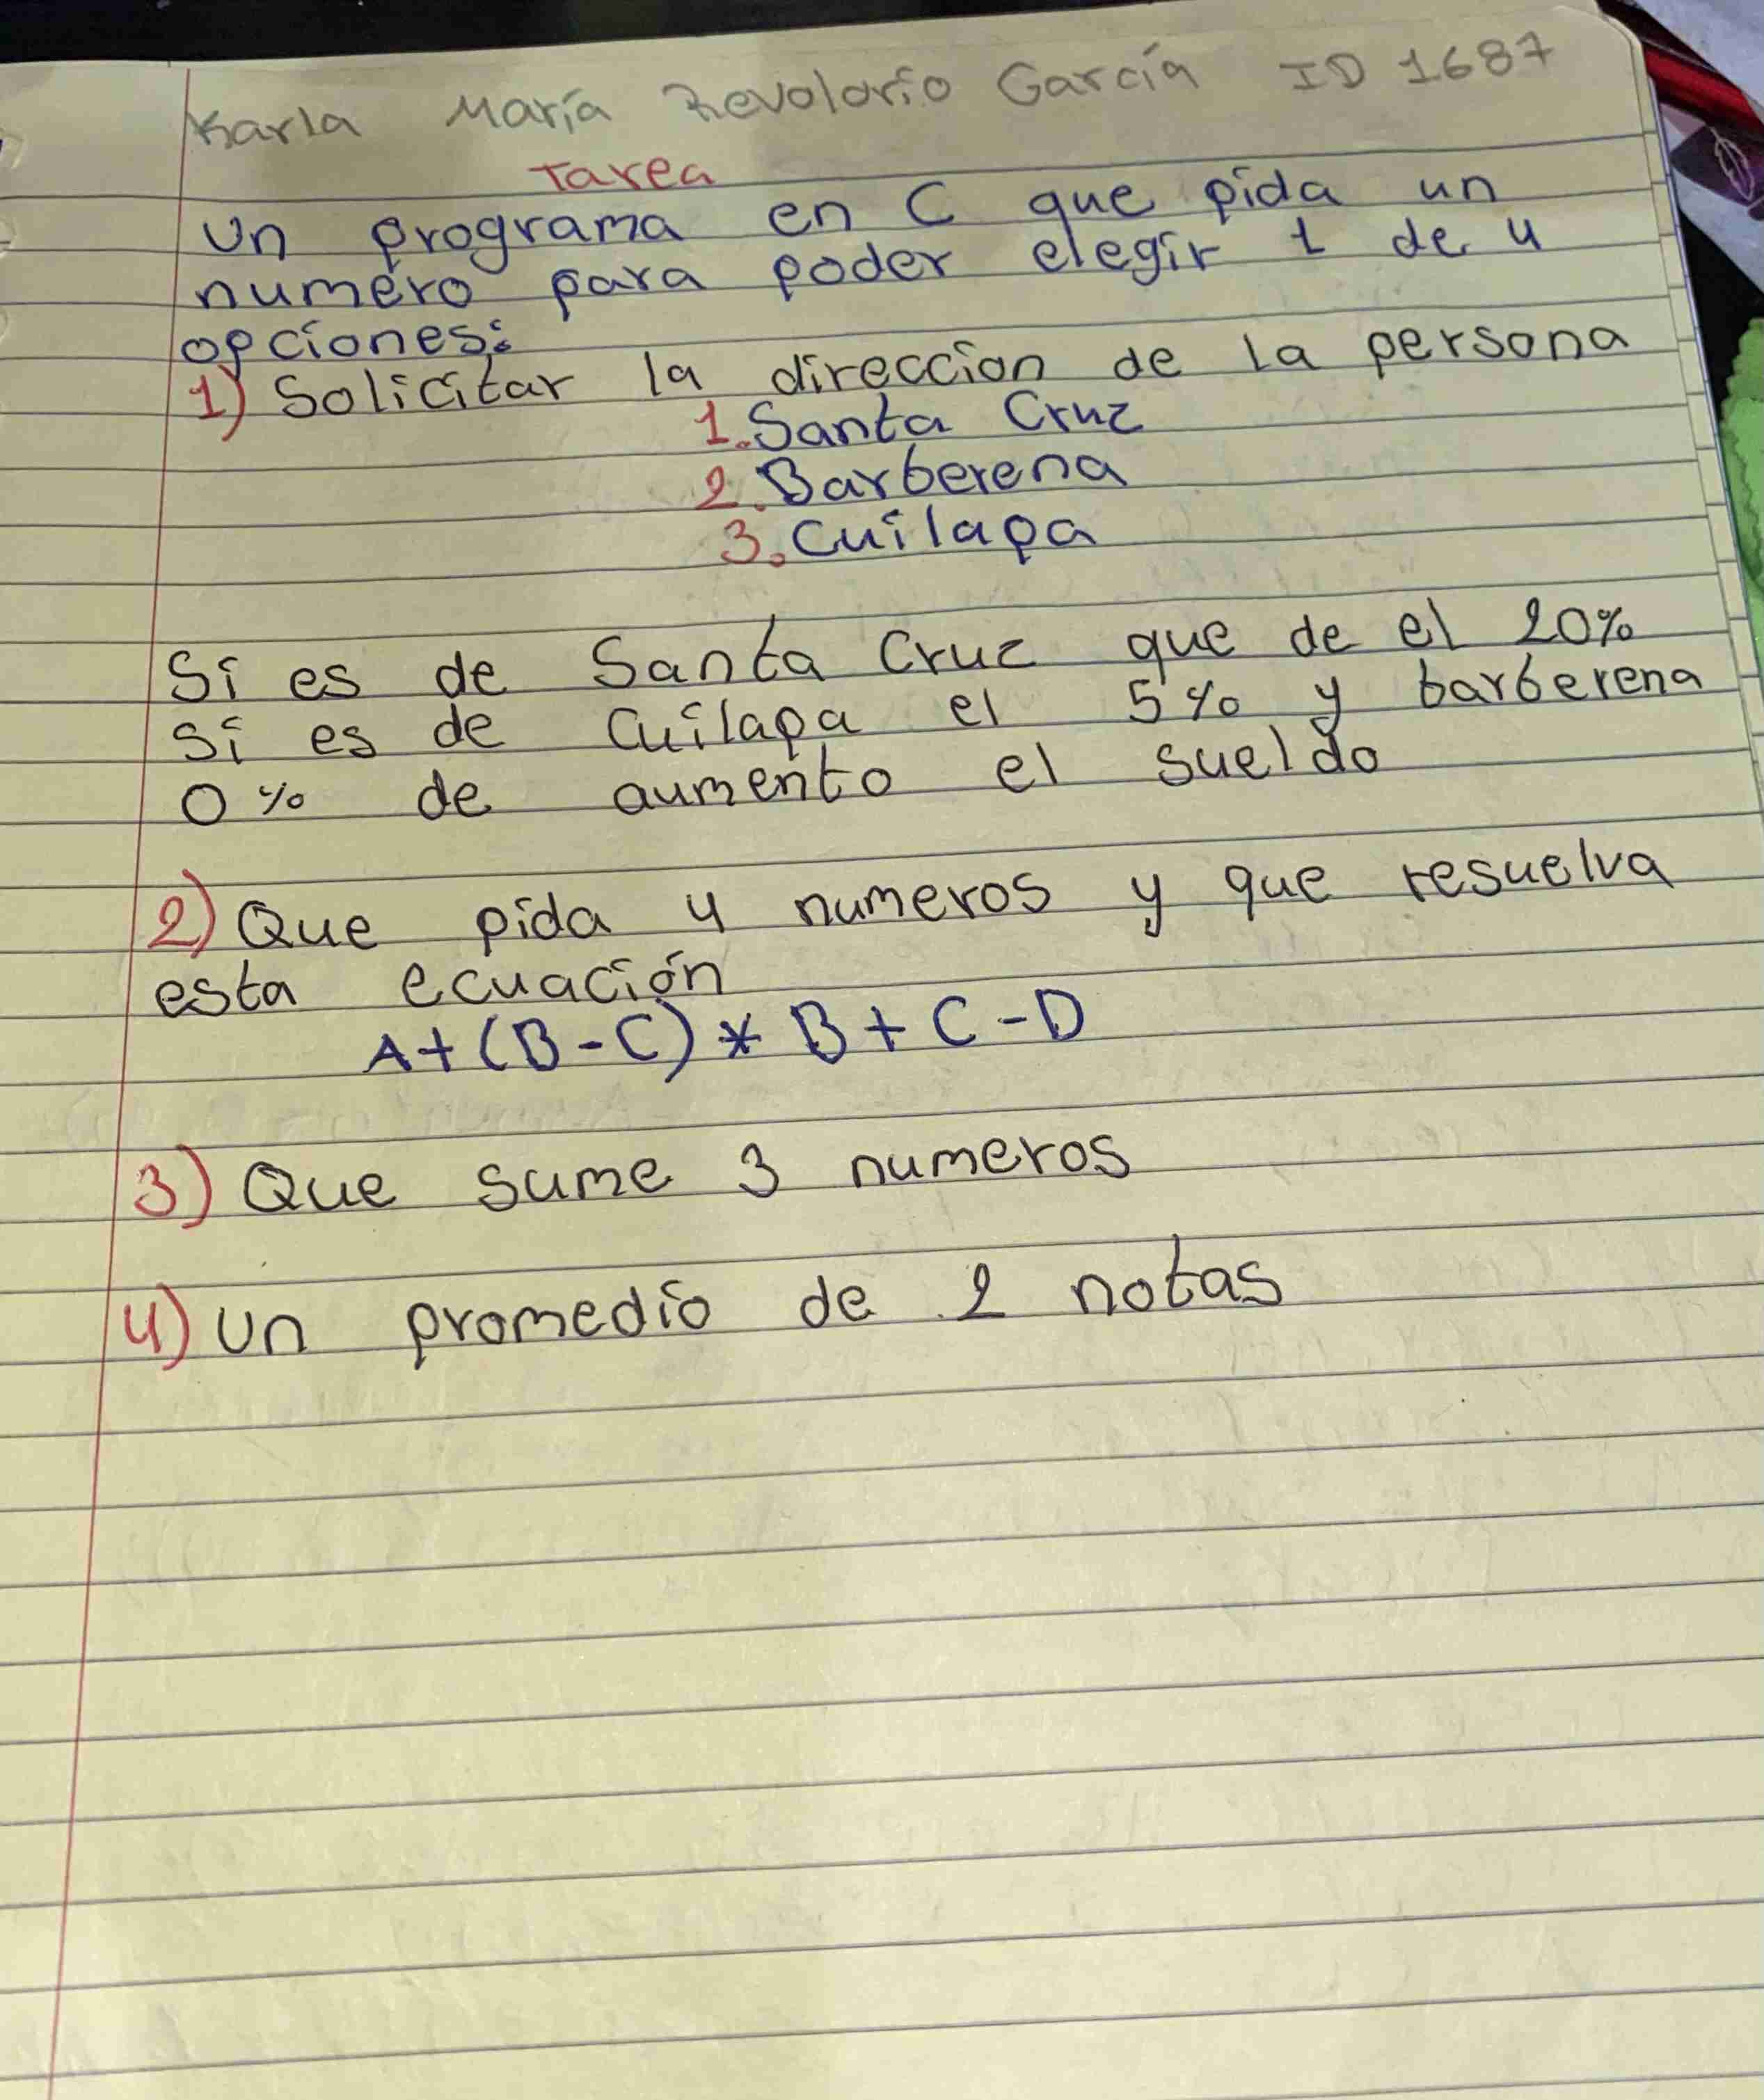 Karla María Revolorio García ID 1687
Tarea
Un programa en C que pida un
numero para poder elegir 1 de 4
opciones:
1) Solicitar la direccion de la persona
1. Santa Cruz
2. Barberena
3. Cuilapa
Si es de Santa Cruz que de el 20%
Si es de Cuilapa el 5% y barberena
0% de aumento el sueldo
2) Que pida 4 numeros y que resuelva
esta ecuación
A+(B-C)*B+C-D
3) Que sume 3 numeros
4) Un promedio de 2 notas